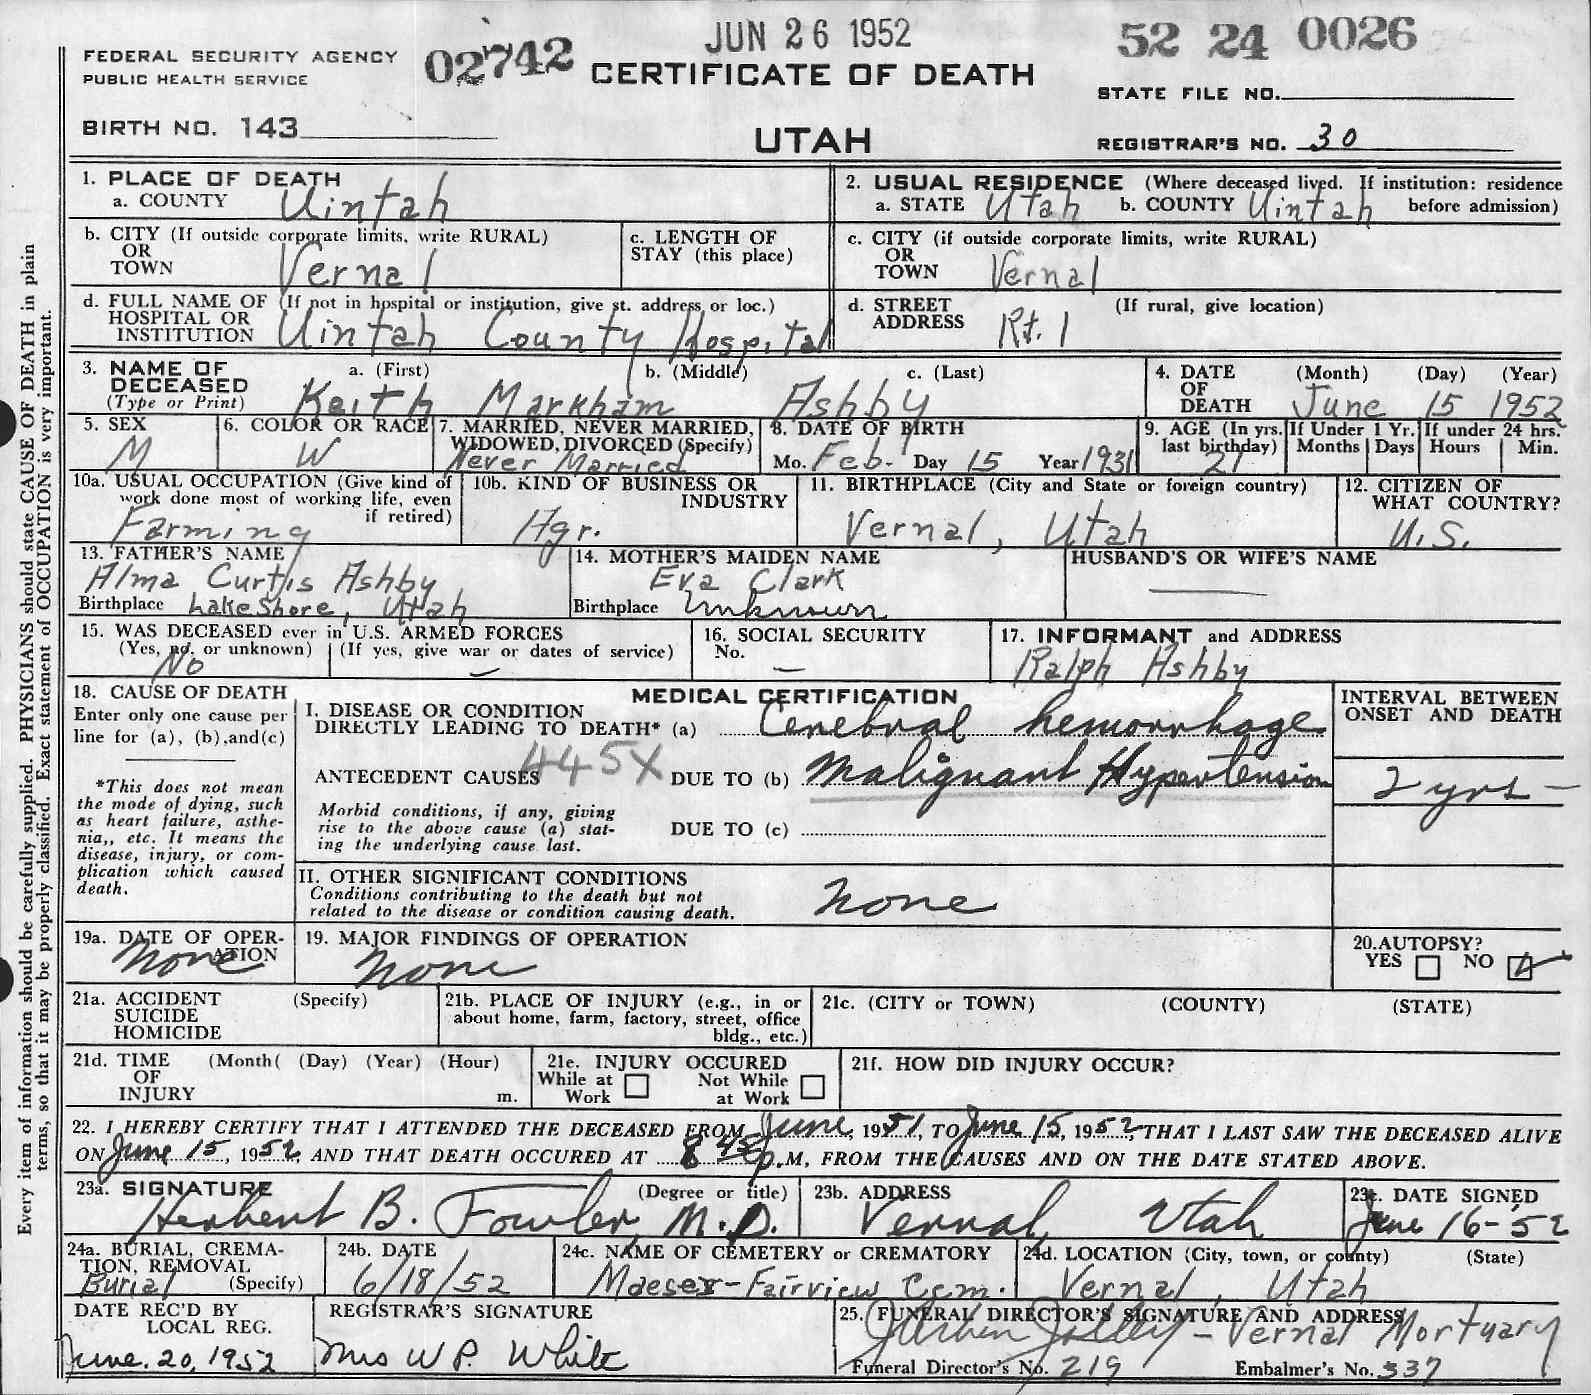 JUN 26 1952
52 24 0026
FEDERAL SECURITY AGENCY
PUBLIC HEALTH SERVICE
02742
CERTIFICATE OF DEATH
STATE FILE NO.
BIRTH NO. 143
UTAH
REGISTRAR'S NO. 30
Every item of information should be carefully supplied. PHYSICIANS should state CAUSE OF DEATH in plain
terms, so that it may be properly classified. Exact statement of OCCUPATION is very important.
1. PLACE OF DEATH
a. COUNTY Uintah
2. USUAL RESIDENCE (Where deceased lived. If institution: residence
a. STATE Utah b. COUNTY Uintah before admission)
b. CITY (If outside corporate limits, write RURAL)
OR
TOWN Vernal
c. LENGTH OF
STAY (this place)
c. CITY (if outside corporate limits, write RURAL)
OR
TOWN Vernal
d. FULL NAME OF (If not in hospital or institution, give st. address or loc.)
HOSPITAL OR
INSTITUTION Uintah County Hospital
d. STREET (If rural, give location)
ADDRESS Rt. 1
3. NAME OF a. (First) b. (Middle) c. (Last)
DECEASED
(Type or Print) Keith Markham Ashby
4. DATE (Month) (Day) (Year)
OF
DEATH June 15 1952
5. SEX
M
6. COLOR OR RACE
W
7. MARRIED, NEVER MARRIED,
WIDOWED, DIVORCED (Specify)
Never Married
8. DATE OF BIRTH
Mo. Feb. Day 15 Year 1931
9. AGE (In yrs.
last birthday)
21
If Under 1 Yr.
Months Days
If under 24 hrs.
Hours Min.
10a. USUAL OCCUPATION (Give kind of
work done most of working life, even
if retired)
Farming
10b. KIND OF BUSINESS OR
INDUSTRY
Agr.
11. BIRTHPLACE (City and State or foreign country)
Vernal, Utah
12. CITIZEN OF
WHAT COUNTRY?
U.S.
13. FATHER'S NAME
Alma Curtis Ashby
Birthplace Lake Shore, Utah
14. MOTHER'S MAIDEN NAME
Eva Clark
Birthplace Unknown
HUSBAND'S OR WIFE'S NAME
15. WAS DECEASED ever in U.S. ARMED FORCES
(Yes, no. or unknown) (If yes, give war or dates of service)
No –
16. SOCIAL SECURITY
No. –
17. INFORMANT and ADDRESS
Ralph Ashby
18. CAUSE OF DEATH
Enter only one cause per
line for (a), (b), and (c)
*This does not mean
the mode of dying, such
as heart failure, asthe-
nia,, etc. It means the
disease, injury, or com-
plication which caused
death.
MEDICAL CERTIFICATION
I. DISEASE OR CONDITION
DIRECTLY LEADING TO DEATH* (a) Cerebral hemorrhage
ANTECEDENT CAUSES 445X DUE TO (b) Malignant Hypertension
Morbid conditions, if any, giving
rise to the above cause (a) stat-
ing the underlying cause last.
DUE TO (c)
INTERVAL BETWEEN
ONSET AND DEATH
2 yrs –
II. OTHER SIGNIFICANT CONDITIONS
Conditions contributing to the death but not
related to the disease or condition causing death.
none
19a. DATE OF OPER-
ATION
none
19. MAJOR FINDINGS OF OPERATION
none
20. AUTOPSY?
YES NO
21a. ACCIDENT (Specify)
SUICIDE
HOMICIDE
21b. PLACE OF INJURY (e.g., in or
about home, farm, factory, street, office
bldg., etc.)
21c. (CITY or TOWN) (COUNTY) (STATE)
21d. TIME (Month( (Day) (Year) (Hour)
OF
INJURY m.
21e. INJURY OCCURED
While at Not While
Work at Work
21f. HOW DID INJURY OCCUR?
22. I HEREBY CERTIFY THAT I ATTENDED THE DECEASED FROM June, 1951, TO June 15, 1952, THAT I LAST SAW THE DECEASED ALIVE
ON June 15, 1952, AND THAT DEATH OCCURED AT 8 45 P.M, FROM THE CAUSES AND ON THE DATE STATED ABOVE.
23a. SIGNATURE (Degree or title)
Herbert B. Fowler M.D.
23b. ADDRESS
Vernal, Utah
23c. DATE SIGNED
June 16-'52
24a. BURIAL, CREMA-
TION, REMOVAL
Burial (Specify)
24b. DATE
6/18/52
24c. NAME OF CEMETERY or CREMATORY
Maeser-Fairview Cem.
24d. LOCATION (City, town, or county) (State)
Vernal, Utah
DATE REC'D BY
LOCAL REG.
June. 20, 1952
REGISTRAR'S SIGNATURE
Mrs W P. White
25. FUNERAL DIRECTOR'S SIGNATURE AND ADDRESS
Jolley - Vernal Mortuary
Funeral Director's No. 219 Embalmer's No. 337